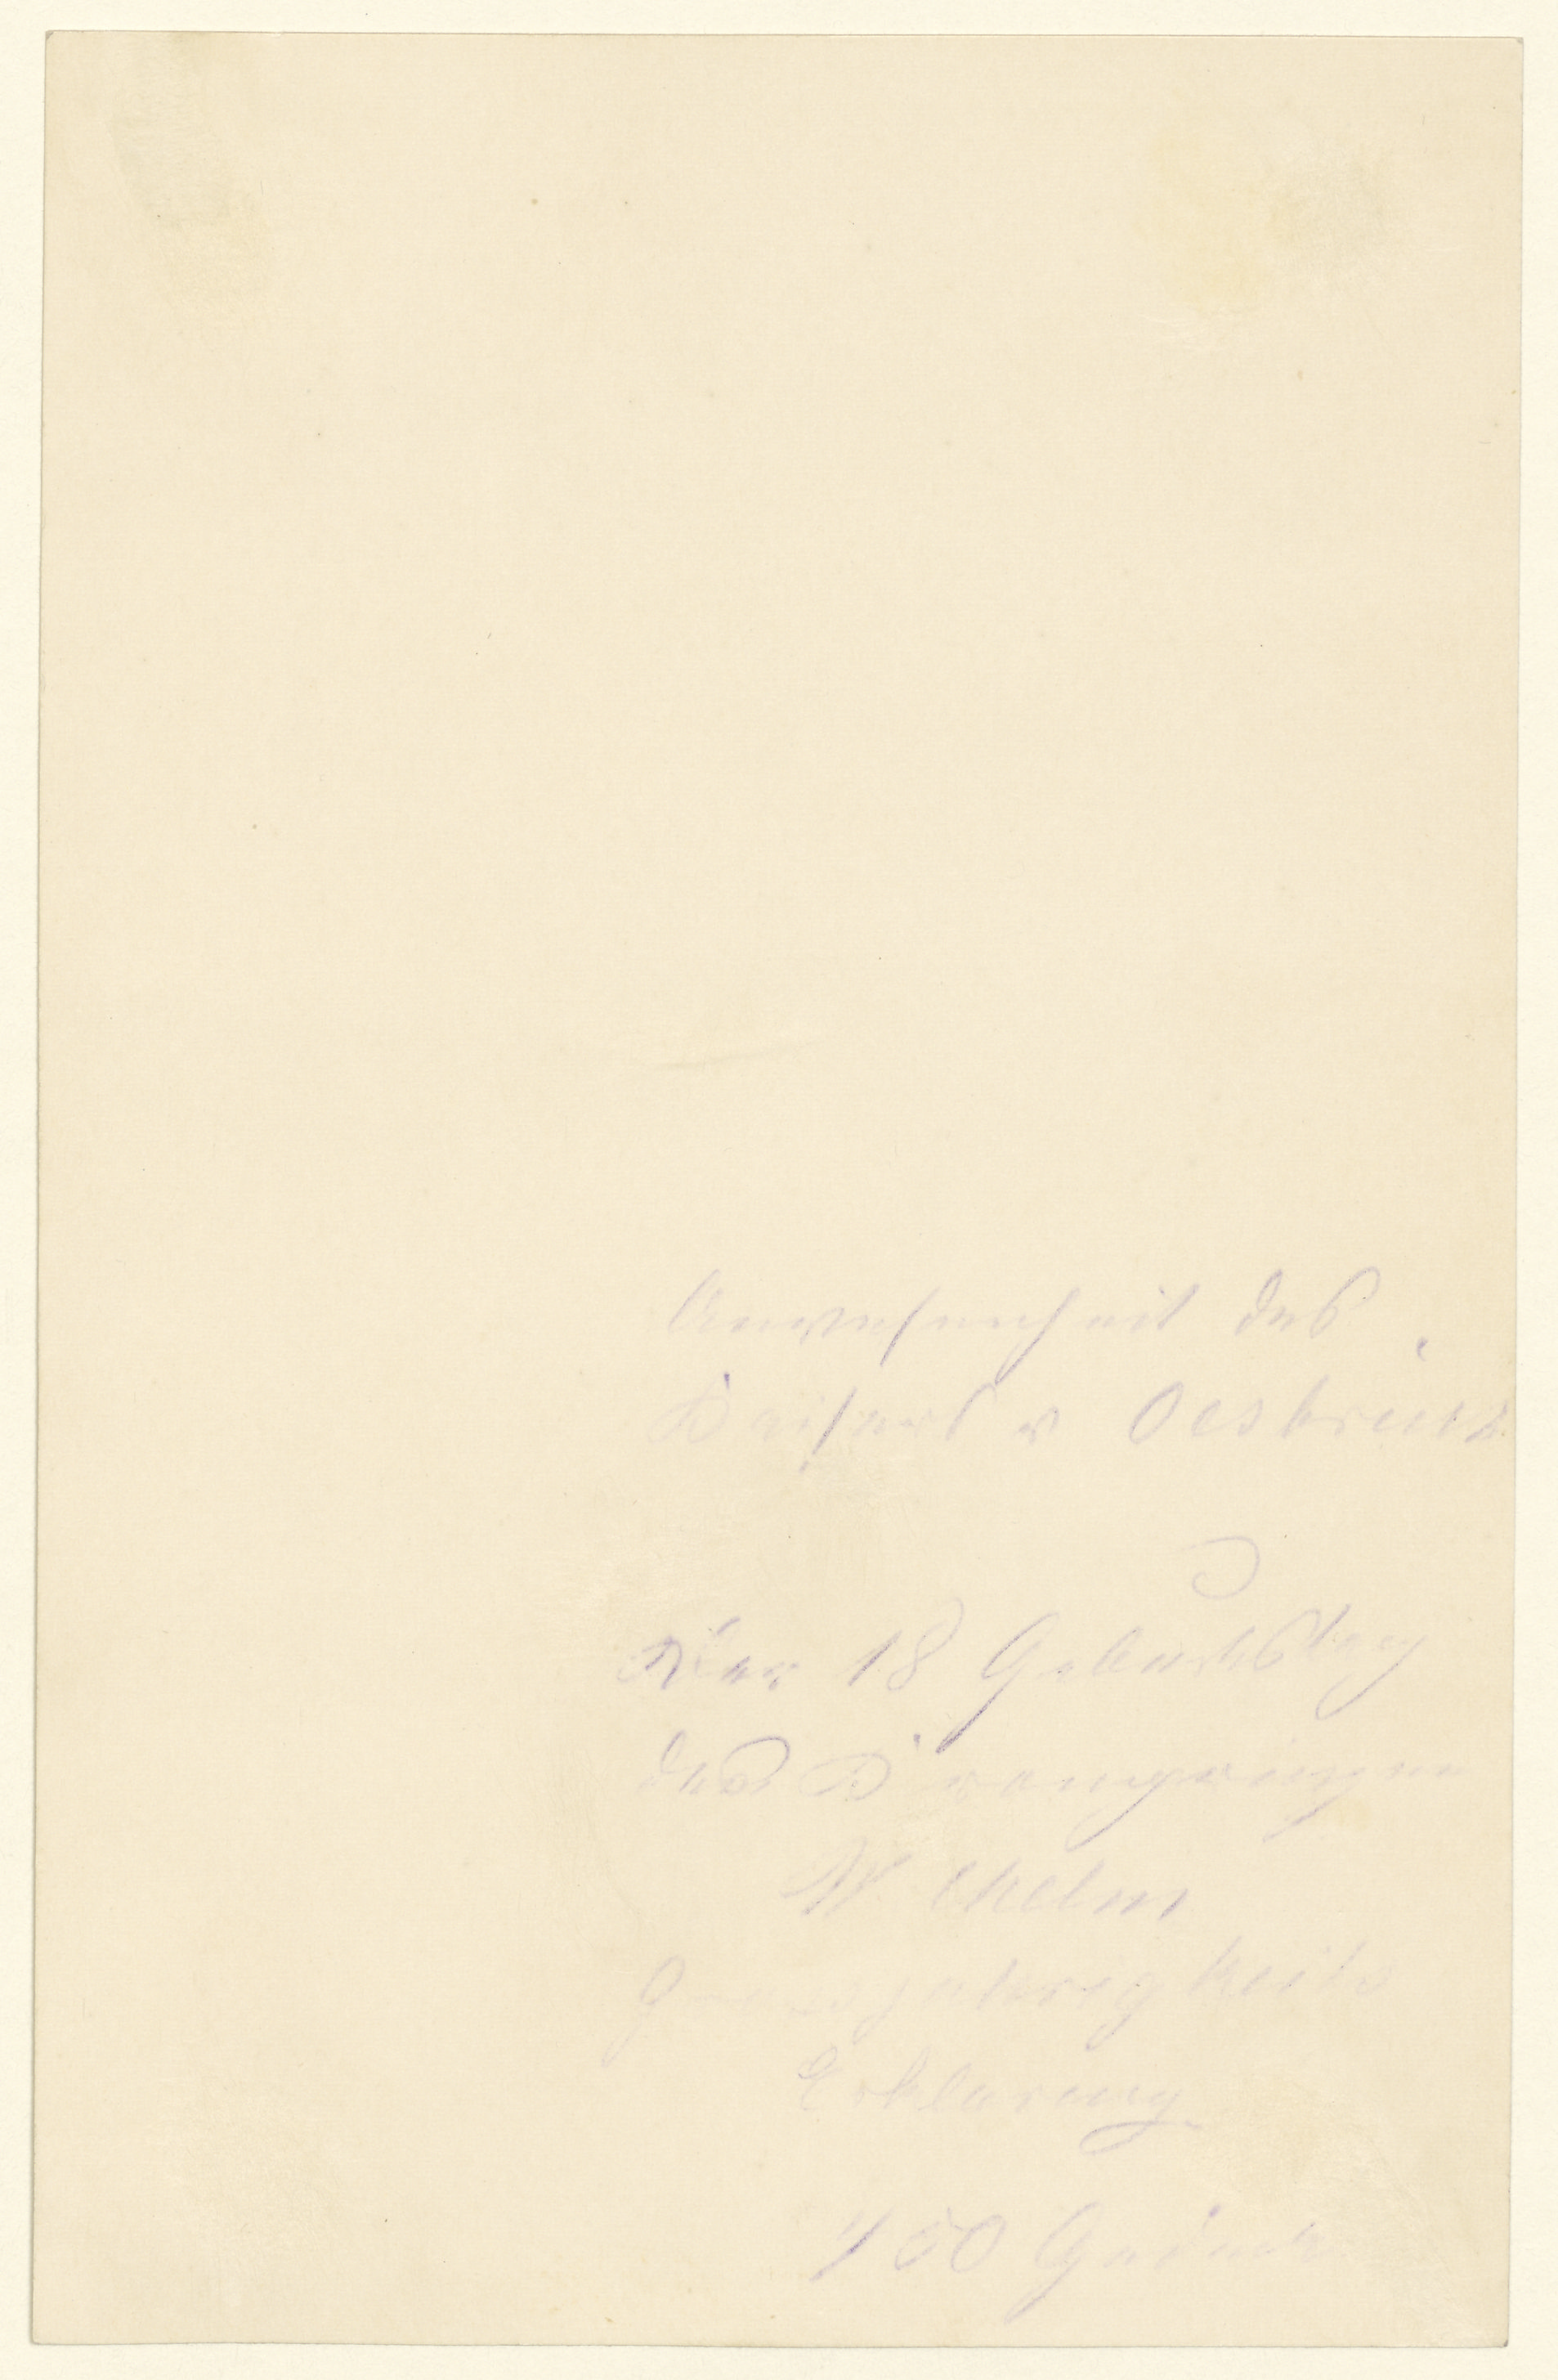 Anwesenheit des
Kaisers v Oestreich
Der 18 Geburtstag
des Kronprinzen
Wilhelm
Grossjahrigkeits
Erklärung
450 Gedeck